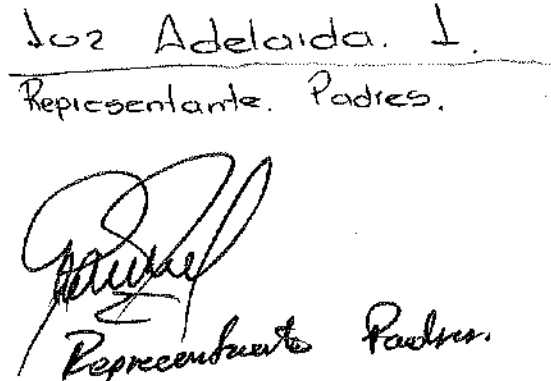 Luz Adelaida. J.
Representante. Padres.
Representante Padres.